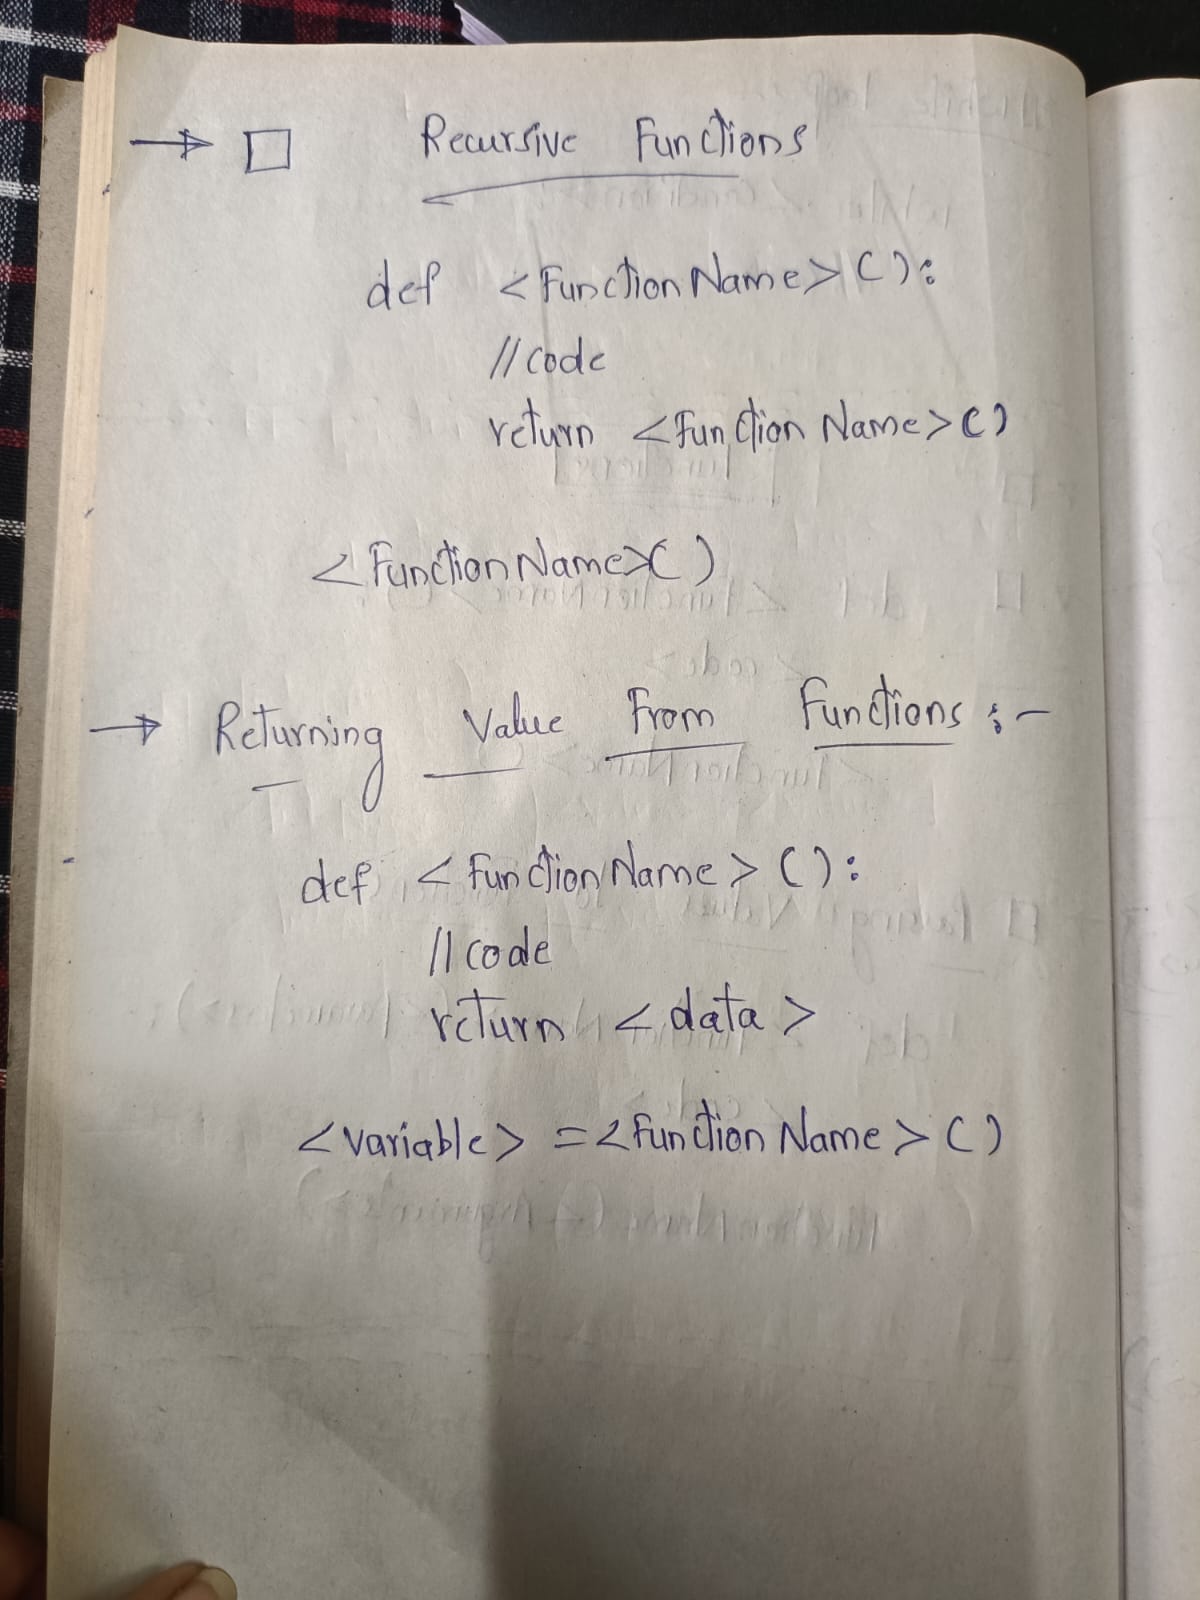 → □ Recursive Functions
def <FunctionName>():
//code
return <FunctionName>()
<FunctionName>()
→ Returning Value From Functions :-
def <FunctionName>():
//code
return <data>
<variable> = <FunctionName>()